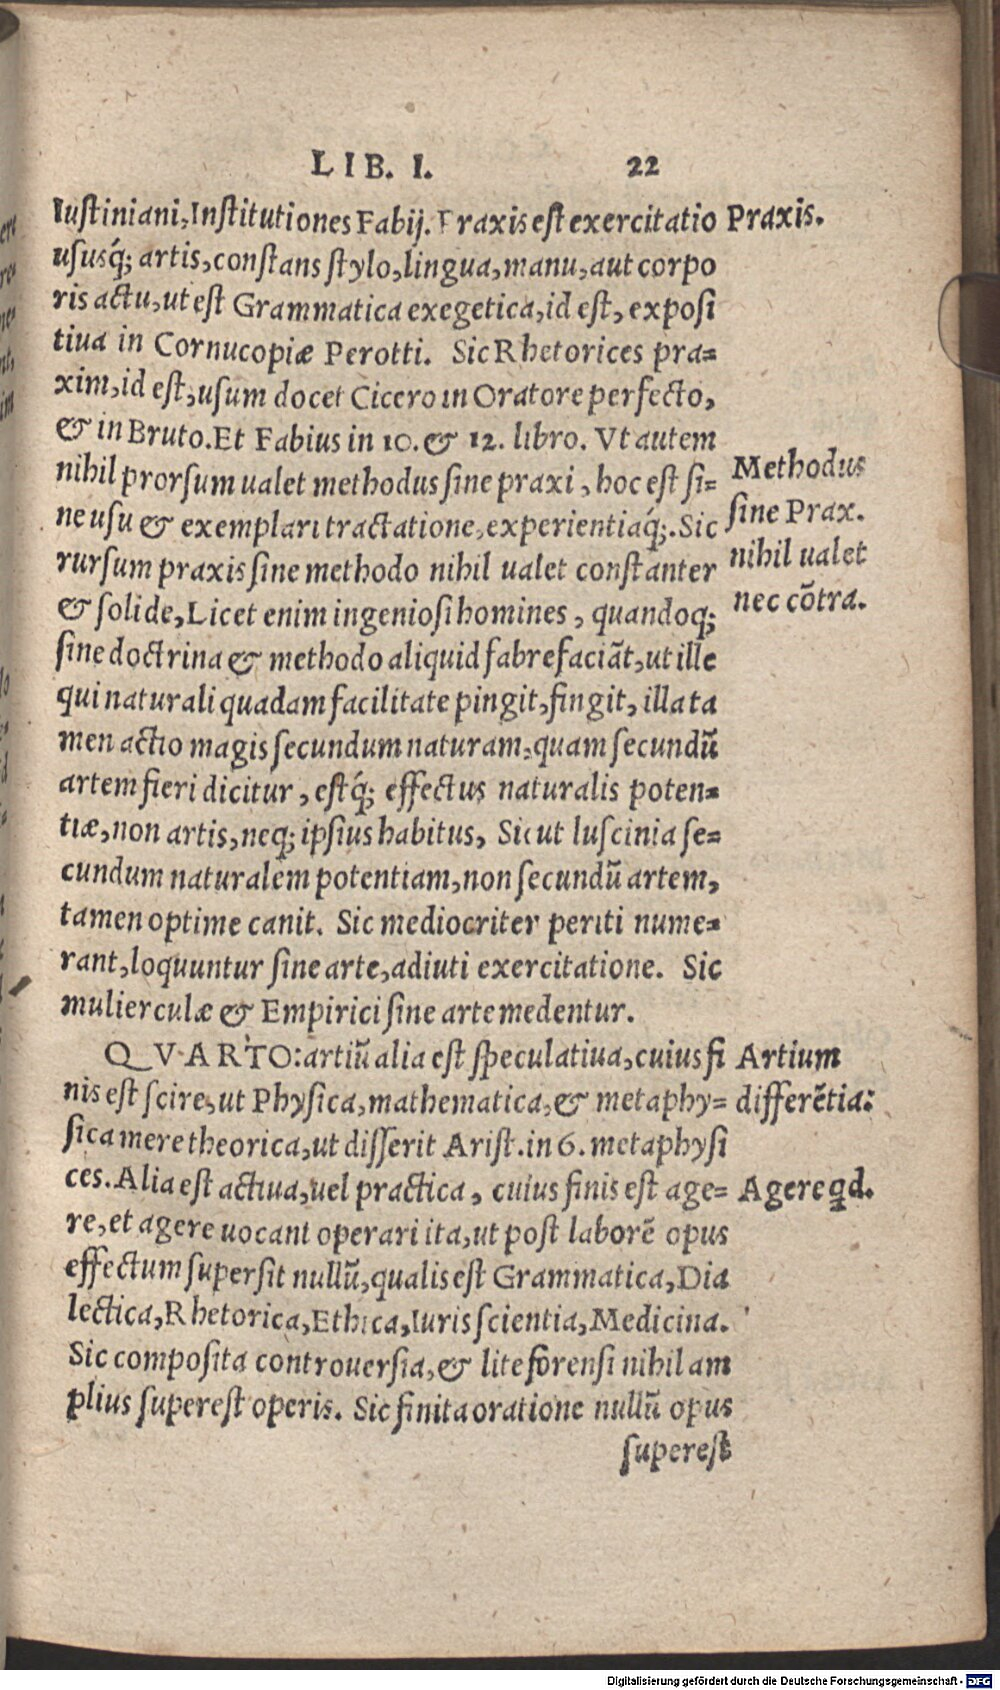 LIB. I. 22
Iustiniani, Institutiones Fabij. Praxis est exercitatio
ususq́; artis, constans stylo, lingua, manu, aut corpo
ris actu, ut est Grammatica exegetica, id est, exposi
tiua in Cornucopiæ Perotti. Sic Rhetorices pra=
xim, id est, usum docet Cicero in Oratore perfecto,
& in Bruto. Et Fabius in 10. & 12. libro. Vt autem
nihil prorsum ualet methodus sine praxi, hoc est si=
ne usu & exemplari tractatione, experientiaq́;. Sic
rursum praxis sine methodo nihil ualet constanter
& solide, Licet enim ingeniosi homines, quandoq;
sine doctrina & methodo aliquid fabrefaciãt, ut ille
qui naturali quadam facilitate pingit, fingit, illa ta
men actio magis secundum naturam, quam secundũ
artem fieri dicitur, estq́; effectus naturalis poten=
tiæ, non artis, neq; ipsius habitus, Sicut luscinia se=
cundum naturalem potentiam, non secundũ artem,
tamen optime canit. Sic mediocriter periti nume=
rant, loquuntur sine arte, adiuti exercitatione. Sic
mulierculæ & Empirici sine arte medentur.
QVARTO: artiũ alia est speculatiua, cuius fi
nis est scire, ut Physica, mathematica, & metaphy=
sica mere theorica, ut disserit Arist. in 6. metaphysi
ces. Alia est actiua, uel practica, cuius finis est age=
re, et agere uocant operari ita, ut post laborẽ opus
effectum supersit nullũ, qualis est Grammatica, Dia
lectica, Rhetorica, Ethica, Iuris scientia, Medicina.
Sic composita controuersia, & lite forensi nihil am
plius superest operis. Sic finita oratione nullũ opus
superest
Praxis.
Methodus
sine Prax.
nihil ualet
nec cõtra.
Artium
differẽtia:
Agere qd.
Digitalisierung gefördert durch die Deutsche Forschungsgemeinschaft - DFG